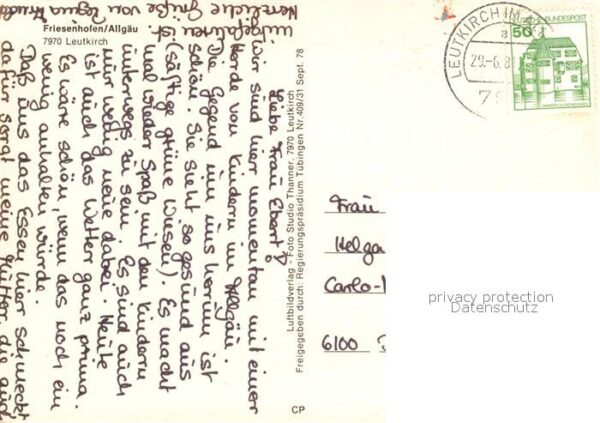 Friesenhofen/Allgäu
7970 Leutkirch
Liebe Frau Ebert!
Wir sind hier momentan mit einer
Horde von Kindern im Allgäu.
Die Gegend um uns herum ist
schön. Sie sieht so gesund aus
(saftige grüne Wiesen). Es macht
mal wieder Spaß mit den Kindern
unterwegs zu sein. Es sind auch
nur wenig neue dabei. Heute
ist auch das Wetter ganz prima.
Es wäre schön, wenn das noch ein
wenig anhalten würde.
Daß uns das Essen hier schmeckt
dafür sorgt meine Mutter, die auch
Herzliche Grüße von
Luftbildverlag - Foto Studio Thanner, 7970 Leutkirch
Freigegeben durch: Regierungspräsidium Tübingen Nr. 409/31 Sept. 78
CP
LEUTKIRCH IM
29.-6.8
79
50
DEUTSCHE BUNDESPOST
Frau
Helga
Carlo-
6100
privacy protection
Datenschutz